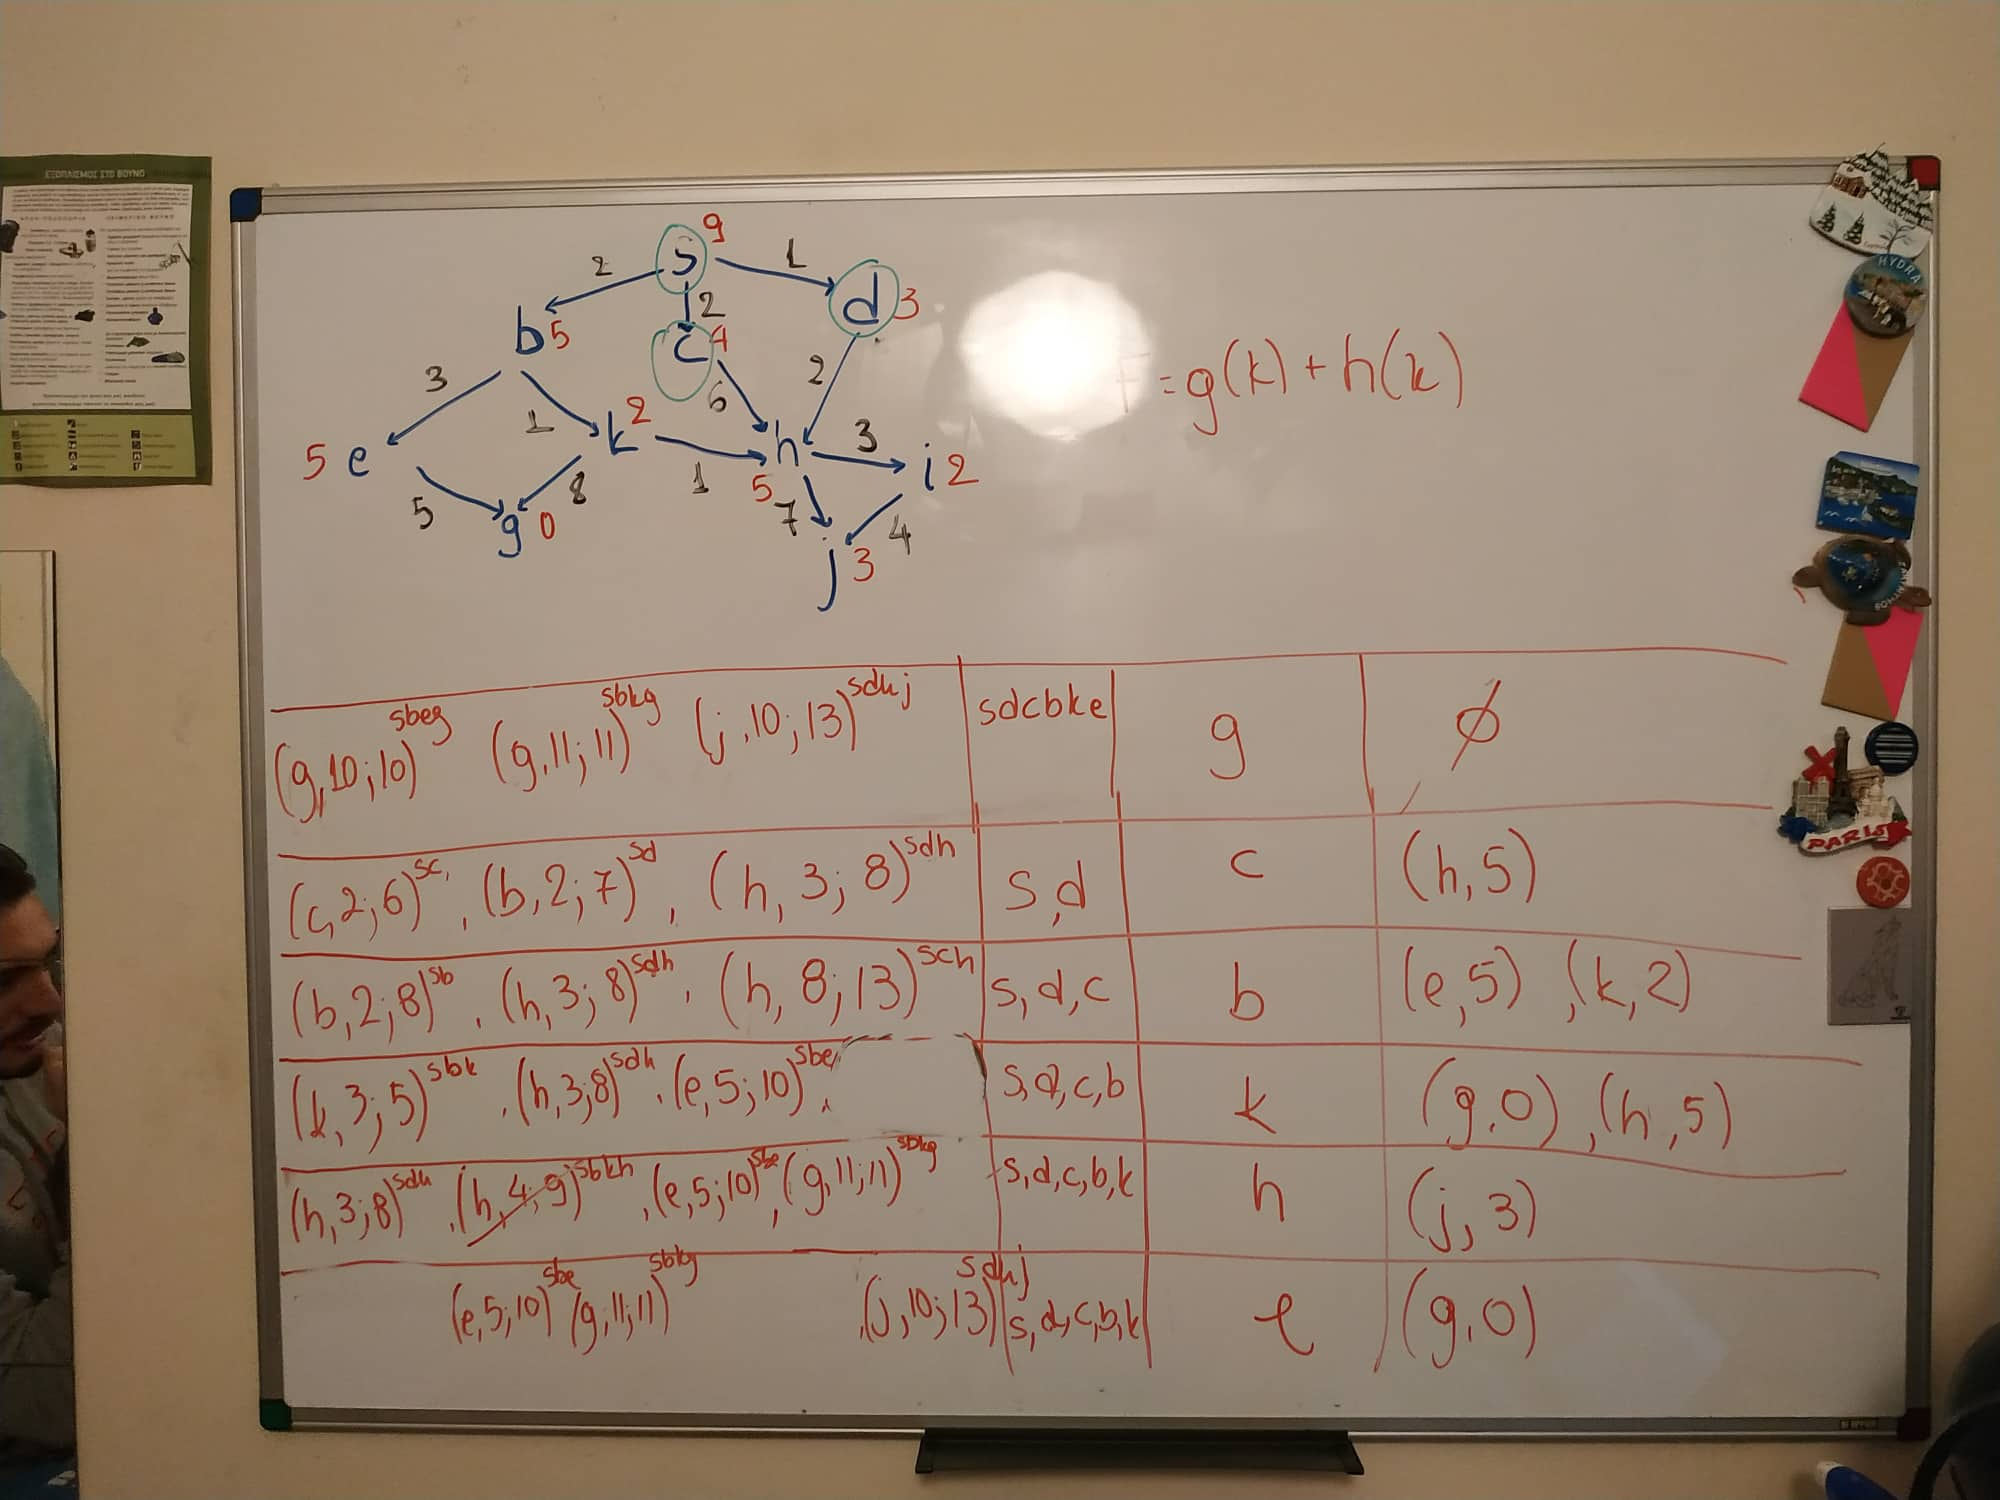 ΕΞΟΠΛΙΣΜΟΣ ΣΤΟ ΒΟΥΝΟ
9
s
2
1
2
d 3
b 5
c 4
3
1
6
2
k 2
h
3
5 e
i 2
5
8
1
5
7
4
g 0
j 3
F = g(k) + h(k)
HYDRA
PARIS
(g,10;10)^sbeg (g,11;11)^sbkg (j,10;13)^sdhj sdcbke g ∅
(c,2;6)^sc, (b,2;7)^sd, (h,3;8)^sdh s,d c (h,5)
(b,2;8)^sb, (h,3;8)^sdh, (h,8;13)^sch s,d,c b (e,5), (k,2)
(k,3;5)^sbk, (h,3;8)^sdh, (e,5;10)^sbe, s,d,c,b k (g,0), (h,5)
(h,3;8)^sdh, (h,4;9)^sbkh, (e,5;10)^sbe, (g,11;11)^sbkg s,d,c,b,k h (j,3)
(e,5;10)^sbe (g,11;11)^sbkg, (j,10;13)^sdhj s,d,c,b,k e (g,0)